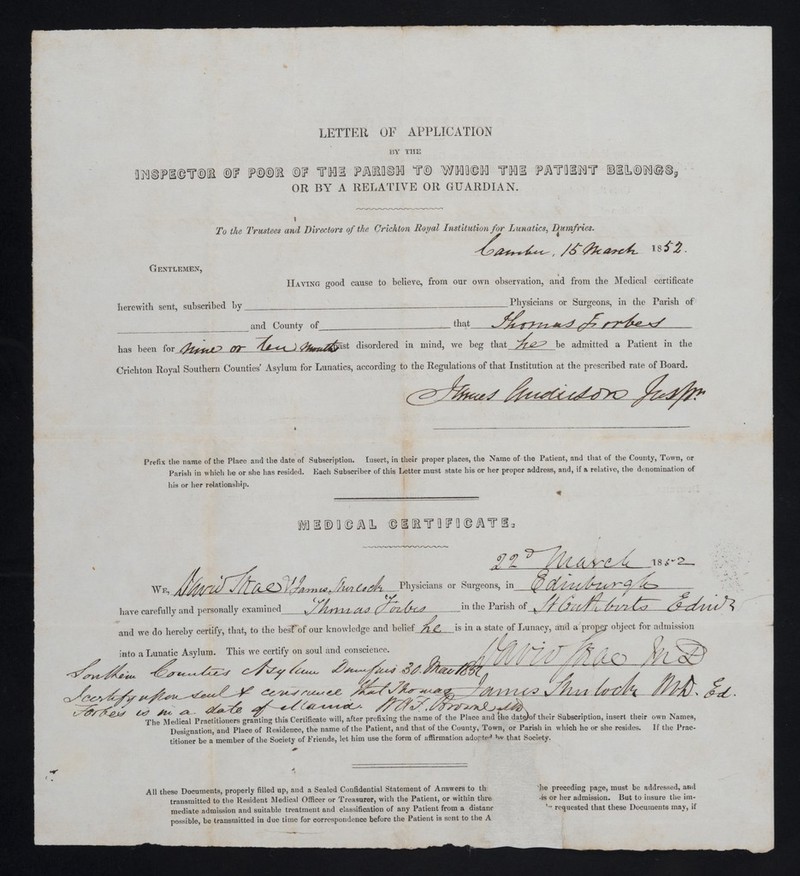 LETTER OF APPLICATION
BY THE
INSPECTOR OF POOR OF THE PARISH TO WHICH THE PATIENT BELONGS,
OR BY A RELATIVE OR GUARDIAN.
To the Trustees and Directors of the Crichton Royal Institution for Lunatics, Dumfries.
15 March 1852.
GENTLEMEN,
HAVING good cause to believe, from our own observation, and from the Medical certificate
herewith sent, subscribed by Physicians or Surgeons, in the Parish of
and County of that Thomas Forbes
has been for nine or ten months past disordered in mind, we beg that he be admitted a Patient in the
Crichton Royal Southern Counties' Asylum for Lunatics, according to the Regulations of that Institution at the prescribed rate of Board.
James Anderson Inspr.
Prefix the name of the Place and the date of Subscription. Insert, in their proper places, the Name of the Patient, and that of the County, Town, or
Parish in which he or she has resided. Each Subscriber of this Letter must state his or her proper address, and, if a relative, the denomination of
his or her relationship.
MEDICAL CERTIFICATE.
22d March 1852
WE, David James Physicians or Surgeons, in Edinburgh
have carefully and personally examined Thomas Forbes in the Parish of St Cuthberts Edinr
and we do hereby certify, that, to the best of our knowledge and belief he is in a state of Lunacy, and a proper object for admission
into a Lunatic Asylum. This we certify on soul and conscience.
David MD
Southern Counties Asylum Dumfries 30 March 1852
I certify upon soul & conscience that Thomas James MD. Ed.
Forbes is in a state of Mania W.A.F. Browne MD
The Medical Practitioners granting this Certificate will, after prefixing the name of the Place and the date of their Subscription, insert their own Names,
Designation, and Place of Residence, the name of the Patient, and that of the County, Town, or Parish in which he or she resides. If the Prac-
titioner be a member of the Society of Friends, let him use the form of affirmation adopted by that Society.
All these Documents, properly filled up, and a Sealed Confidential Statement of Answers to th he preceding page, must be addressed, and
transmitted to the Resident Medical Officer or Treasurer, with the Patient, or within thre is or her admission. But to insure the im-
mediate admission and suitable treatment and classification of any Patient from a distanc requested that these Documents may, if
possible, be transmitted in due time for correspondence before the Patient is sent to the A